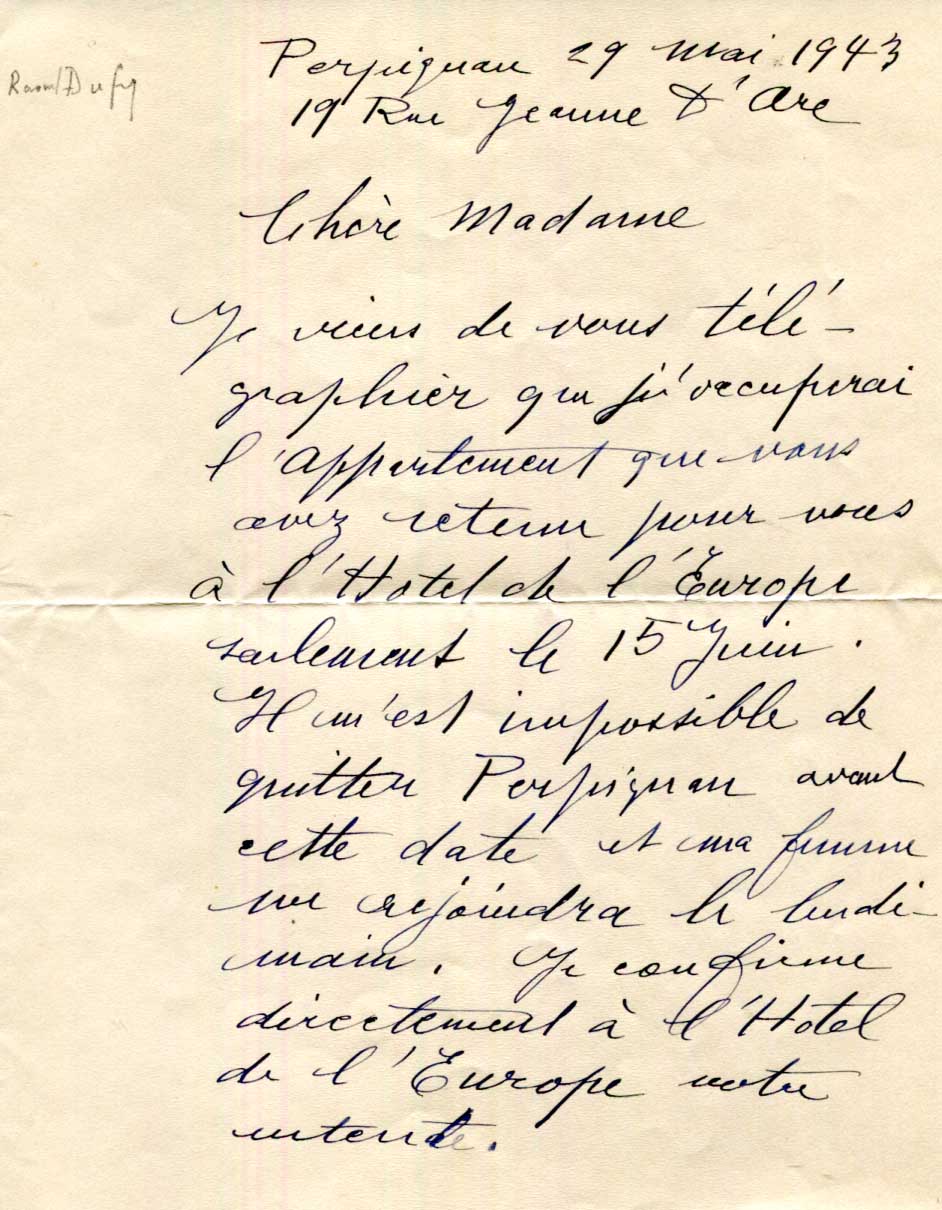 Raoul Dufy
Perpignan 29 Mai 1943
19 Rue Jeanne D'Arc
Chère Madame
Je viens de vous télé-
graphier que j'occuperai
l'Appartement que vous
avez retenu pour nous
à l'Hotel de l'Europe
seulement le 15 Juin.
Il m'est impossible de
quitter Perpignan avant
cette date et ma femme
me rejoindra le lende-
main. Je confirme
directement à l'Hotel
de l'Europe notre
entente.